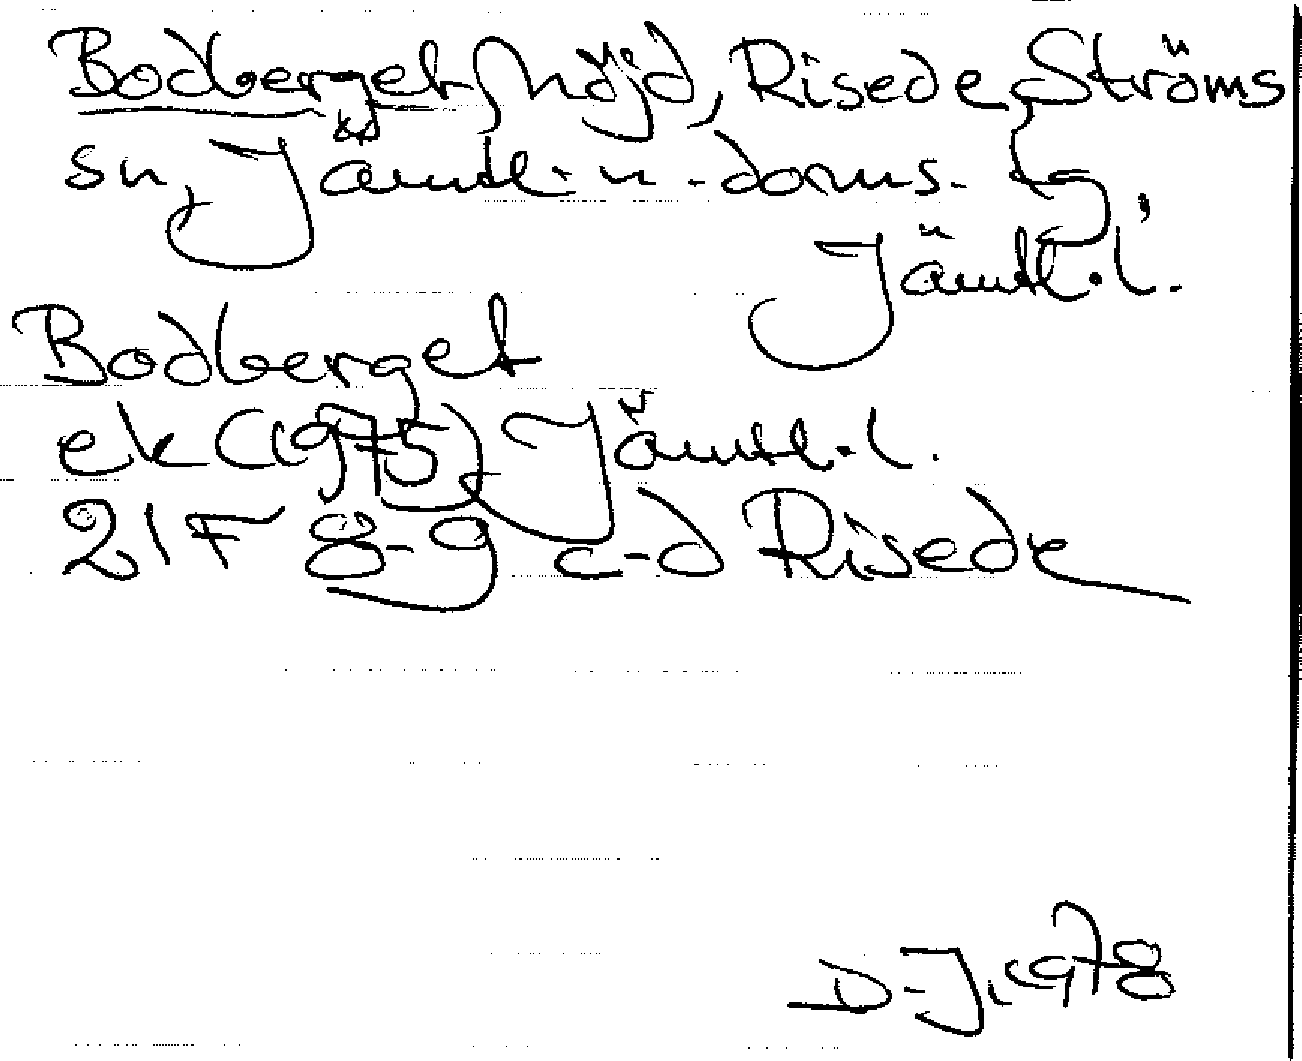 Bodberget, höjd, Risede, Ströms
sn, Jämtl. n. doms. tg,
Jämtl. l.
Bodberget
ek (1975) Jämtl. l.
21 F 8-9 c-d Risede
1978